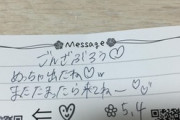 Message
ごんざぶろう♡
めっちゃ出たね♡w
またたまったら来てねー♡
5.4